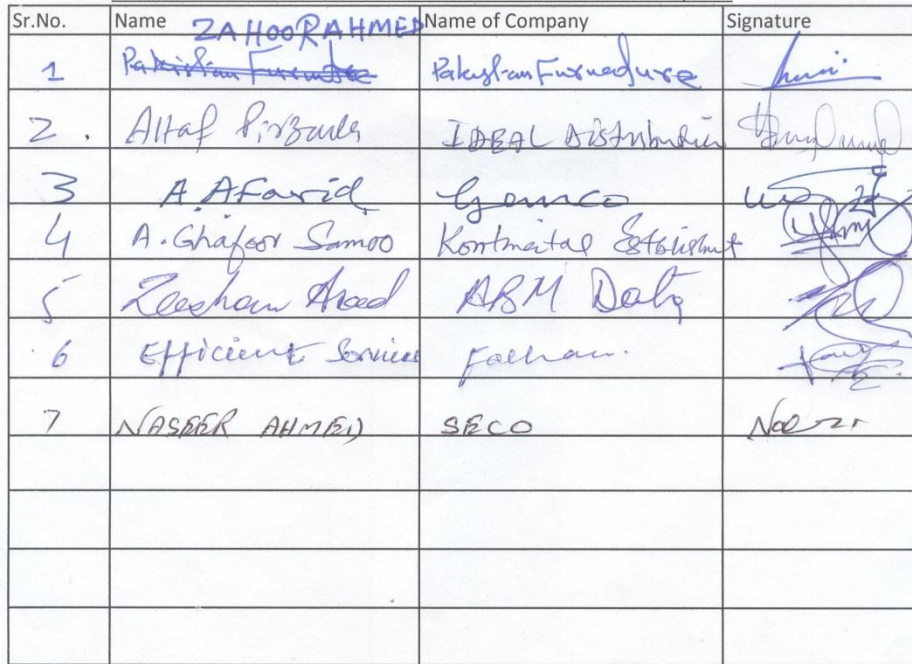 Sr.No. Name Name of Company Signature
ZAHOOR AHMED
1 Pakistan Furnature Pakystan Furnadure
2. Altaf Pirzada IDEAL Distribution
3 A. A Farid Gemco
4 A. Ghafoor Samoo Kontinental Establishmt
5 Zeeshan Asad ABM Data
6 Efficient Service Falhan.
7 NASEER AHMED SECO